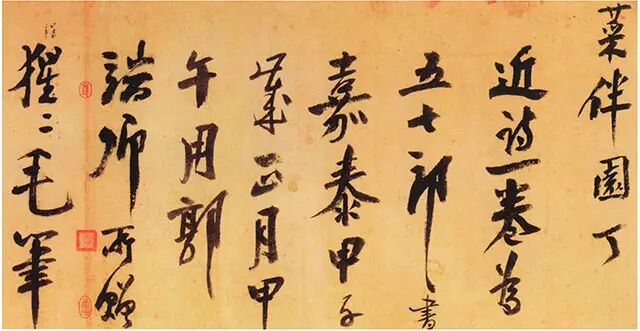 菜伴園丁
近詩一卷為
五七郎書
嘉泰甲子
歲正月甲
午用郭
端卿所贈
猩〻毛筆